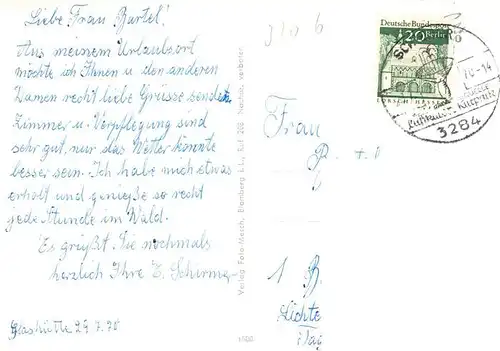 Liebe Frau Bartel!
Aus meinem Urlaubsort
möchte ich Ihnen u. den anderen
Damen recht liebe Grüsse senden.
Zimmer u. Verpflegung sind
sehr gut, nur das Wetter könnte
besser sein. Ich habe mich etwas
erholt und genieße so recht
jede Stunde im Wald.
Es grüßt Sie nochmals
herzlich Ihre E. Schirmer
Glashütte 29.7.70
Verlag Foto-Mesch, Blomberg i. L., Tel. Nachdr. verboten
Deutsche Bundespost
20 Berlin
LORSCH HESSEN
70-14
Luftkurort
3284
Frau
1 B
Lichte